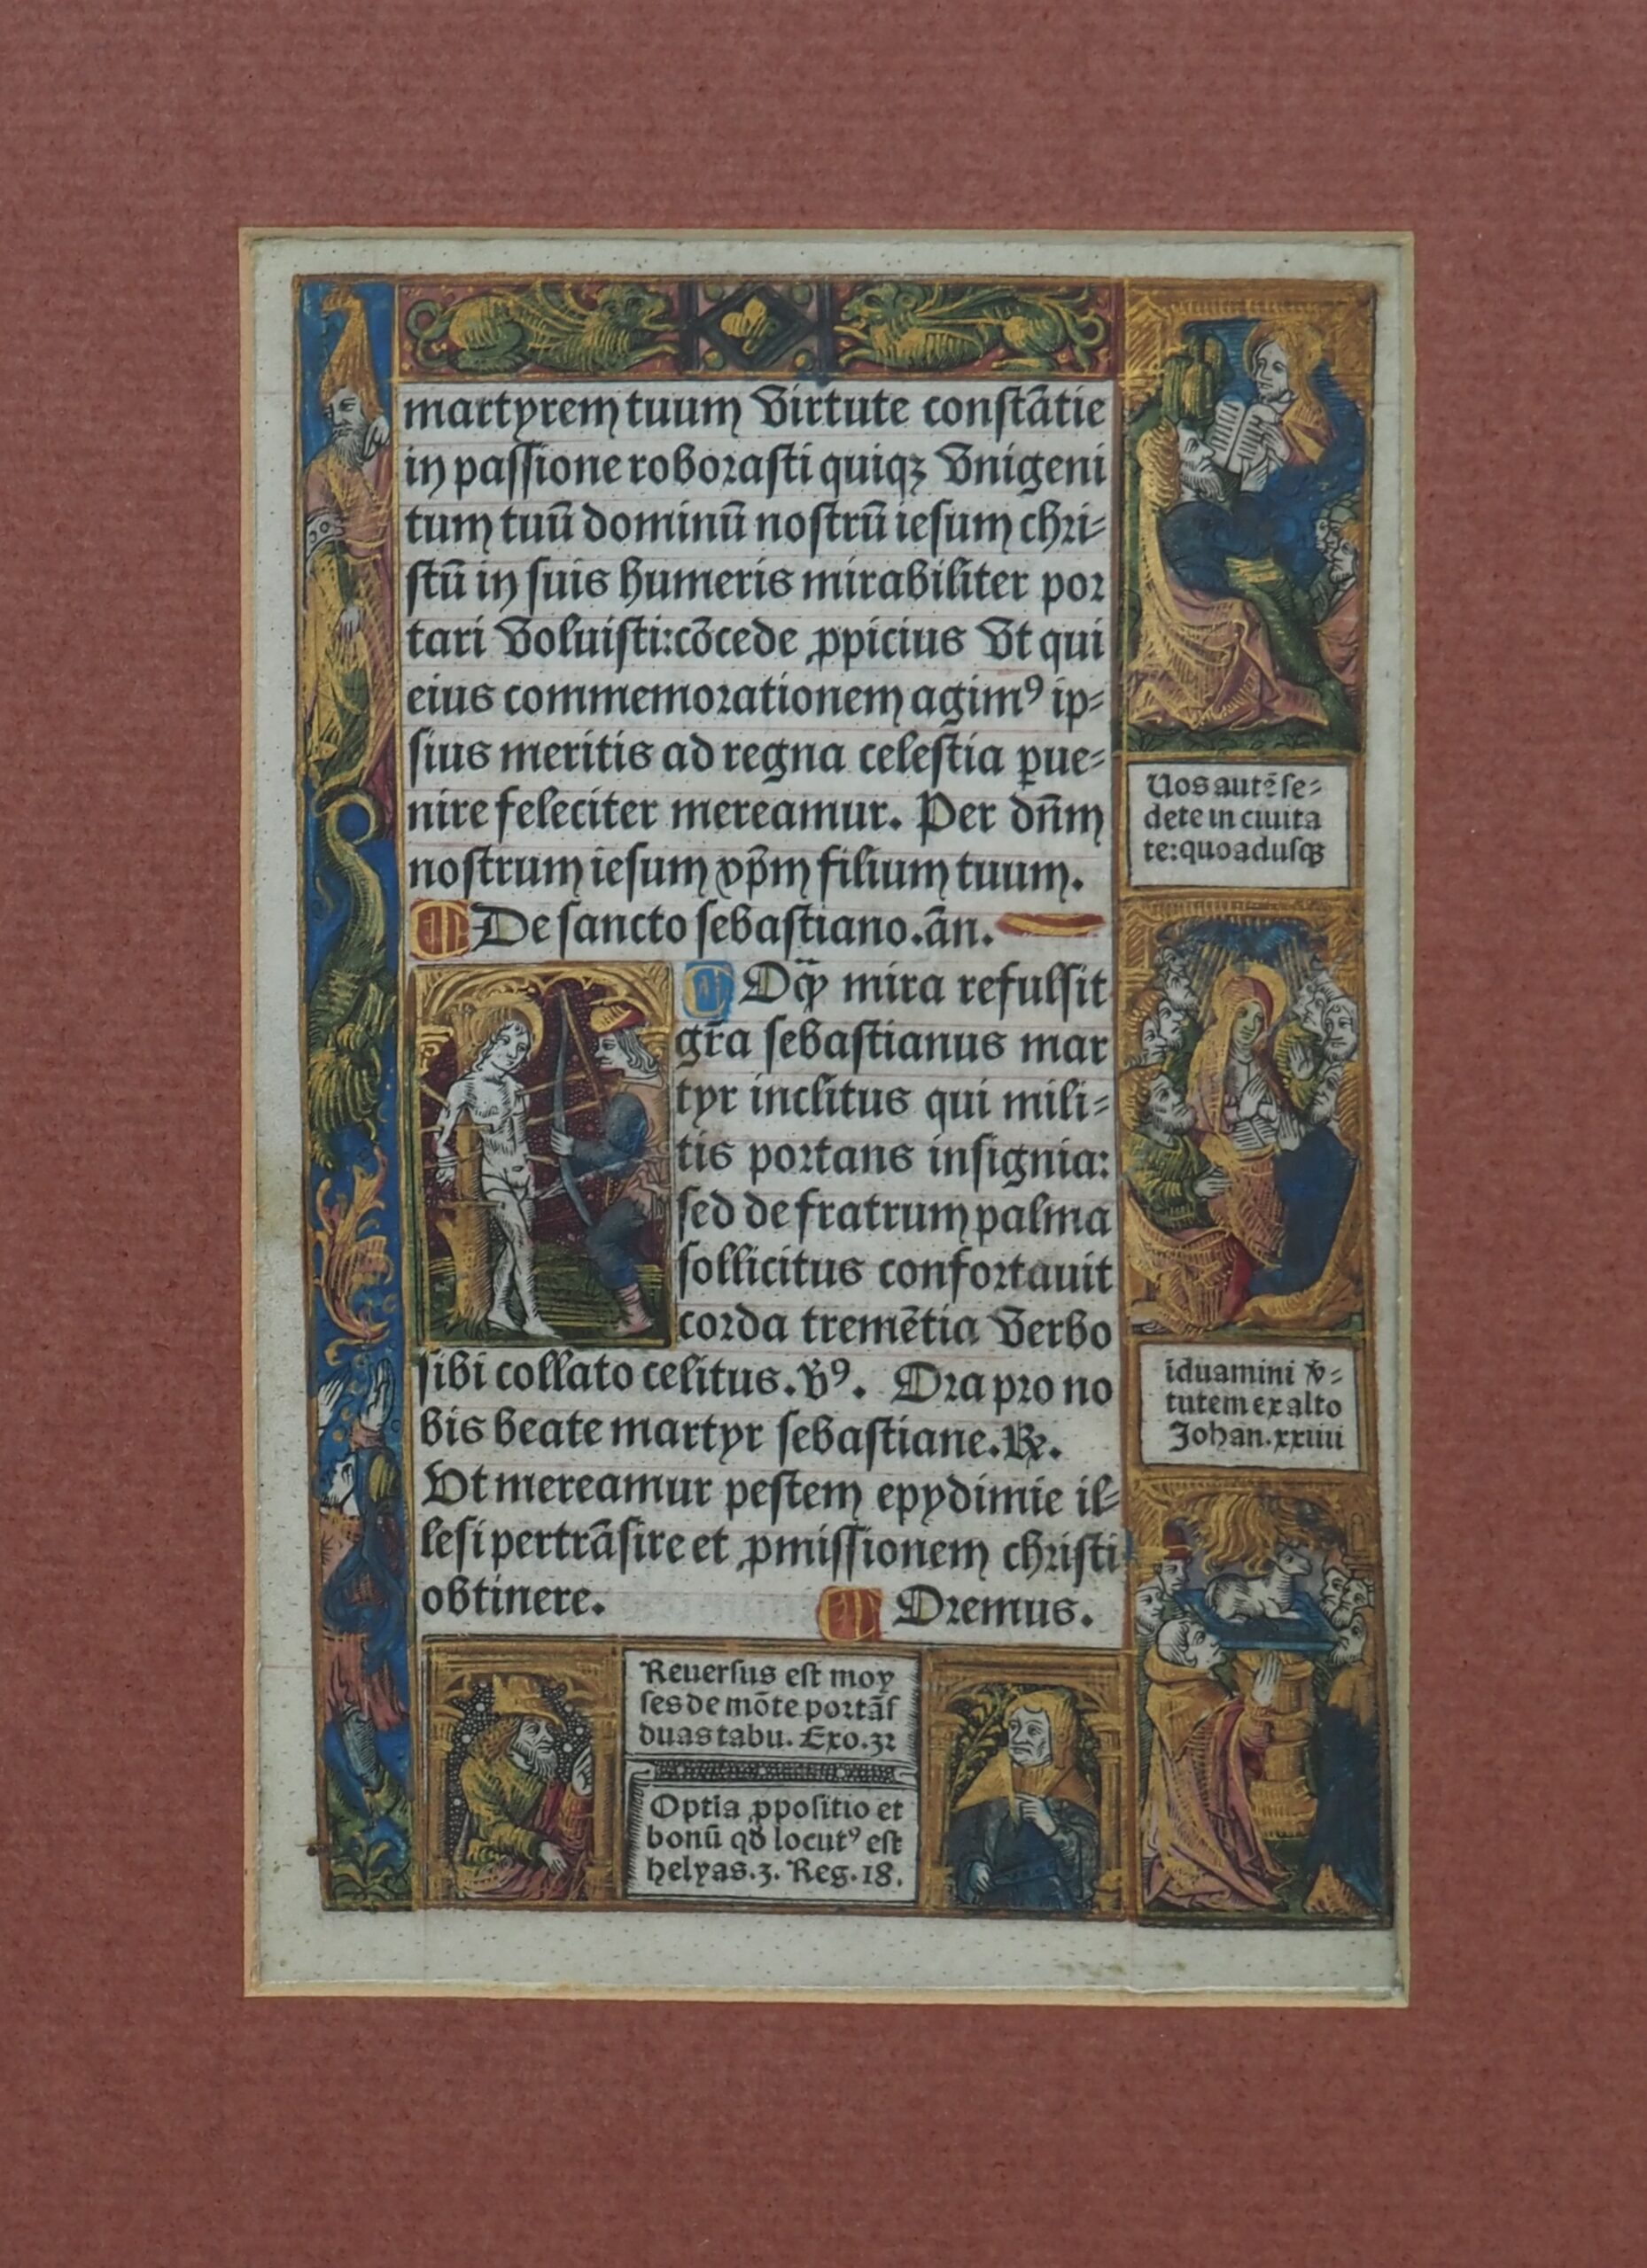 martyrem tuum Virtute constãtie
in passione roborasti quiqꝫ Vnigeni
tum tuũ dominũ nostrũ iesum chri-
stũ in suis humeris mirabiliter por
tari Voluisti:cõcede ꝓpicius Vt qui
eius commemorationem agimꝰ ip-
sius meritis ad regna celestia ꝑue-
nire feleciter mereamur. Per dñm
nostrum iesum xp̃m filium tuum.
De sancto sebastiano.ãn.
O ꝙ̃ mira refulsit
gr̃a sebastianus mar
tyr inclitus qui mili-
tis portans insignia:
sed de fratrum palma
sollicitus confortauit
corda tremẽtia Verbo
sibi collato celitus. Vꝰ. Ora pro no
bis beate martyr sebastiane. ℞.
Vt mereamur pestem epydimie il-
lesi pertrãsire et ꝓmissionem christi
obtinere. Oremus.
Uos autẽ se-
dete in ciuita
te:quoadusqꝫ
ĩduamini v̾-
tutem ex alto
Johan.xxiiii
Reuersus est moy
ses de mõte portãs
duas tabu. Exo.32
Optĩa ꝓpositio et
bonũ qđ locutꝰ est
helyas.3. Reg.18.